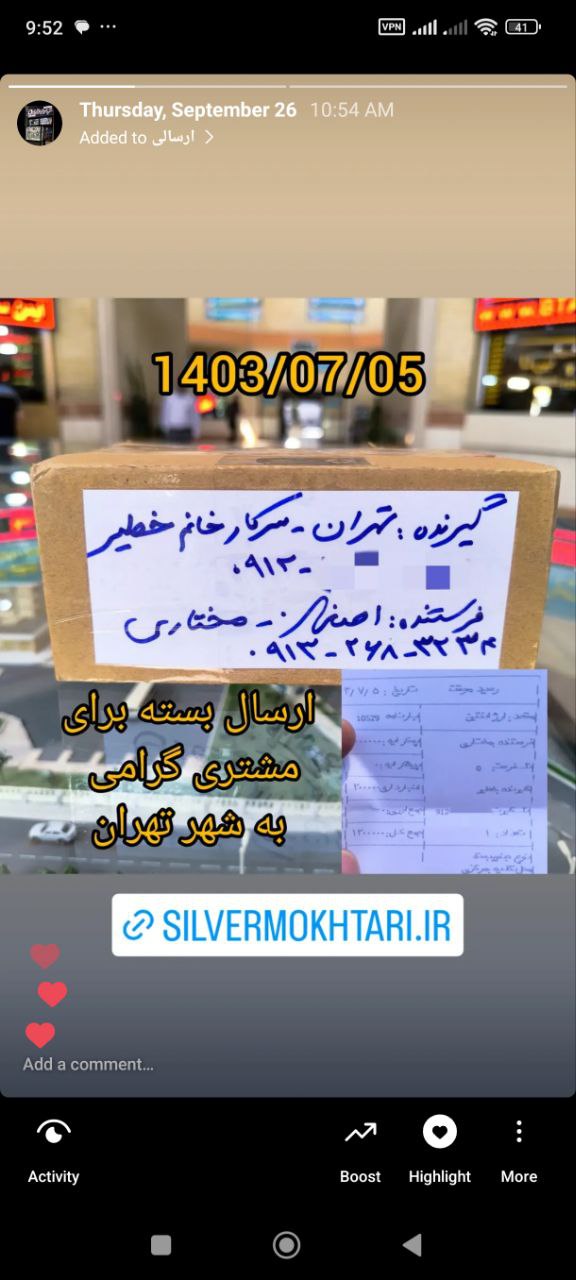 9:52
VPN
41
Thursday, September 26 10:54 AM
Added to ارسالی
1403/07/05
گیرنده: تهران - سرکار خانم خطیر
۰۹۱۲-
فرستنده: اصفهان - مختاری
۰۹۱۳-۲۶۸-۳۲۳۴
رسید موقت
10529
ارسال بسته برای
مشتری گرامی
به شهر تهران
SILVERMOKHTARI.IR
Add a comment...
Activity
Boost
Highlight
More